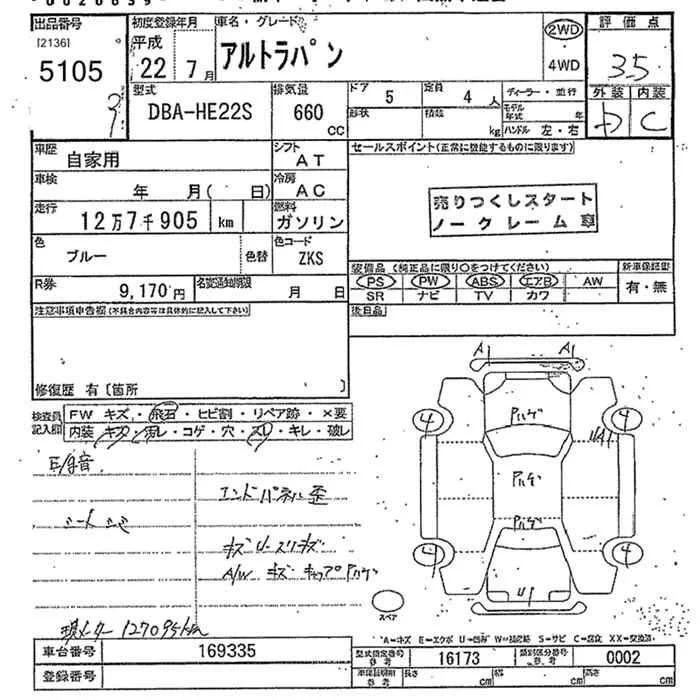 出品番号
[2136]
5105
初度登録年月
平成
22年 7月
車名・グレード
アルトラパン
2WD
4WD
評価点
3.5
外装 内装
D C
型式
DBA-HE22S
排気量
660
CC
ドア
5
定員
4人
形状
積載
kg
ディーラー・並行
モデル年式 年
ハンドル 左・右
車歴
自家用
シフト
AT
車検
年 月( 日)
冷房
AC
走行
12万7千905 km
燃料
ガソリン
色
ブルー
色替
色コード
ZKS
R券
9,170円
名変通知期限
月 日
セールスポイント(正常に機能するものに限ります)
売りつくしスタート
ノークレーム車
装備品 (純正品に限り○をつけてください)
PS PW ABS エアB AW
SR ナビ TV カワ
新車保証書
有・無
注意事項申告欄(不具合内容等は具体的に記入して下さい)
後日品
修復歴 有〔箇所 〕
検査員
記入欄
FW キズ・飛石・ヒビ割・リペア跡・×要
内装・キズ・汚レ・コゲ・穴・スレ・キレ・破レ
エンドパネル歪
シート シミ
キズ U-スリキズ
A/W キズ キャップハゲ
A1 A1
ハゲ
ハゲ
ハゲ
4 4
4 4
U1
スペア
現メーター 127095km
A=キズ E=エクボ U=凹み W=補修跡 S=サビ C=腐食 XX=交換済
車台番号
169335
登録番号
型式指定番号
参考
16173
類別区分番号
参考
0002
車検証期間
参考
長さ cm
幅 cm
高さ cm